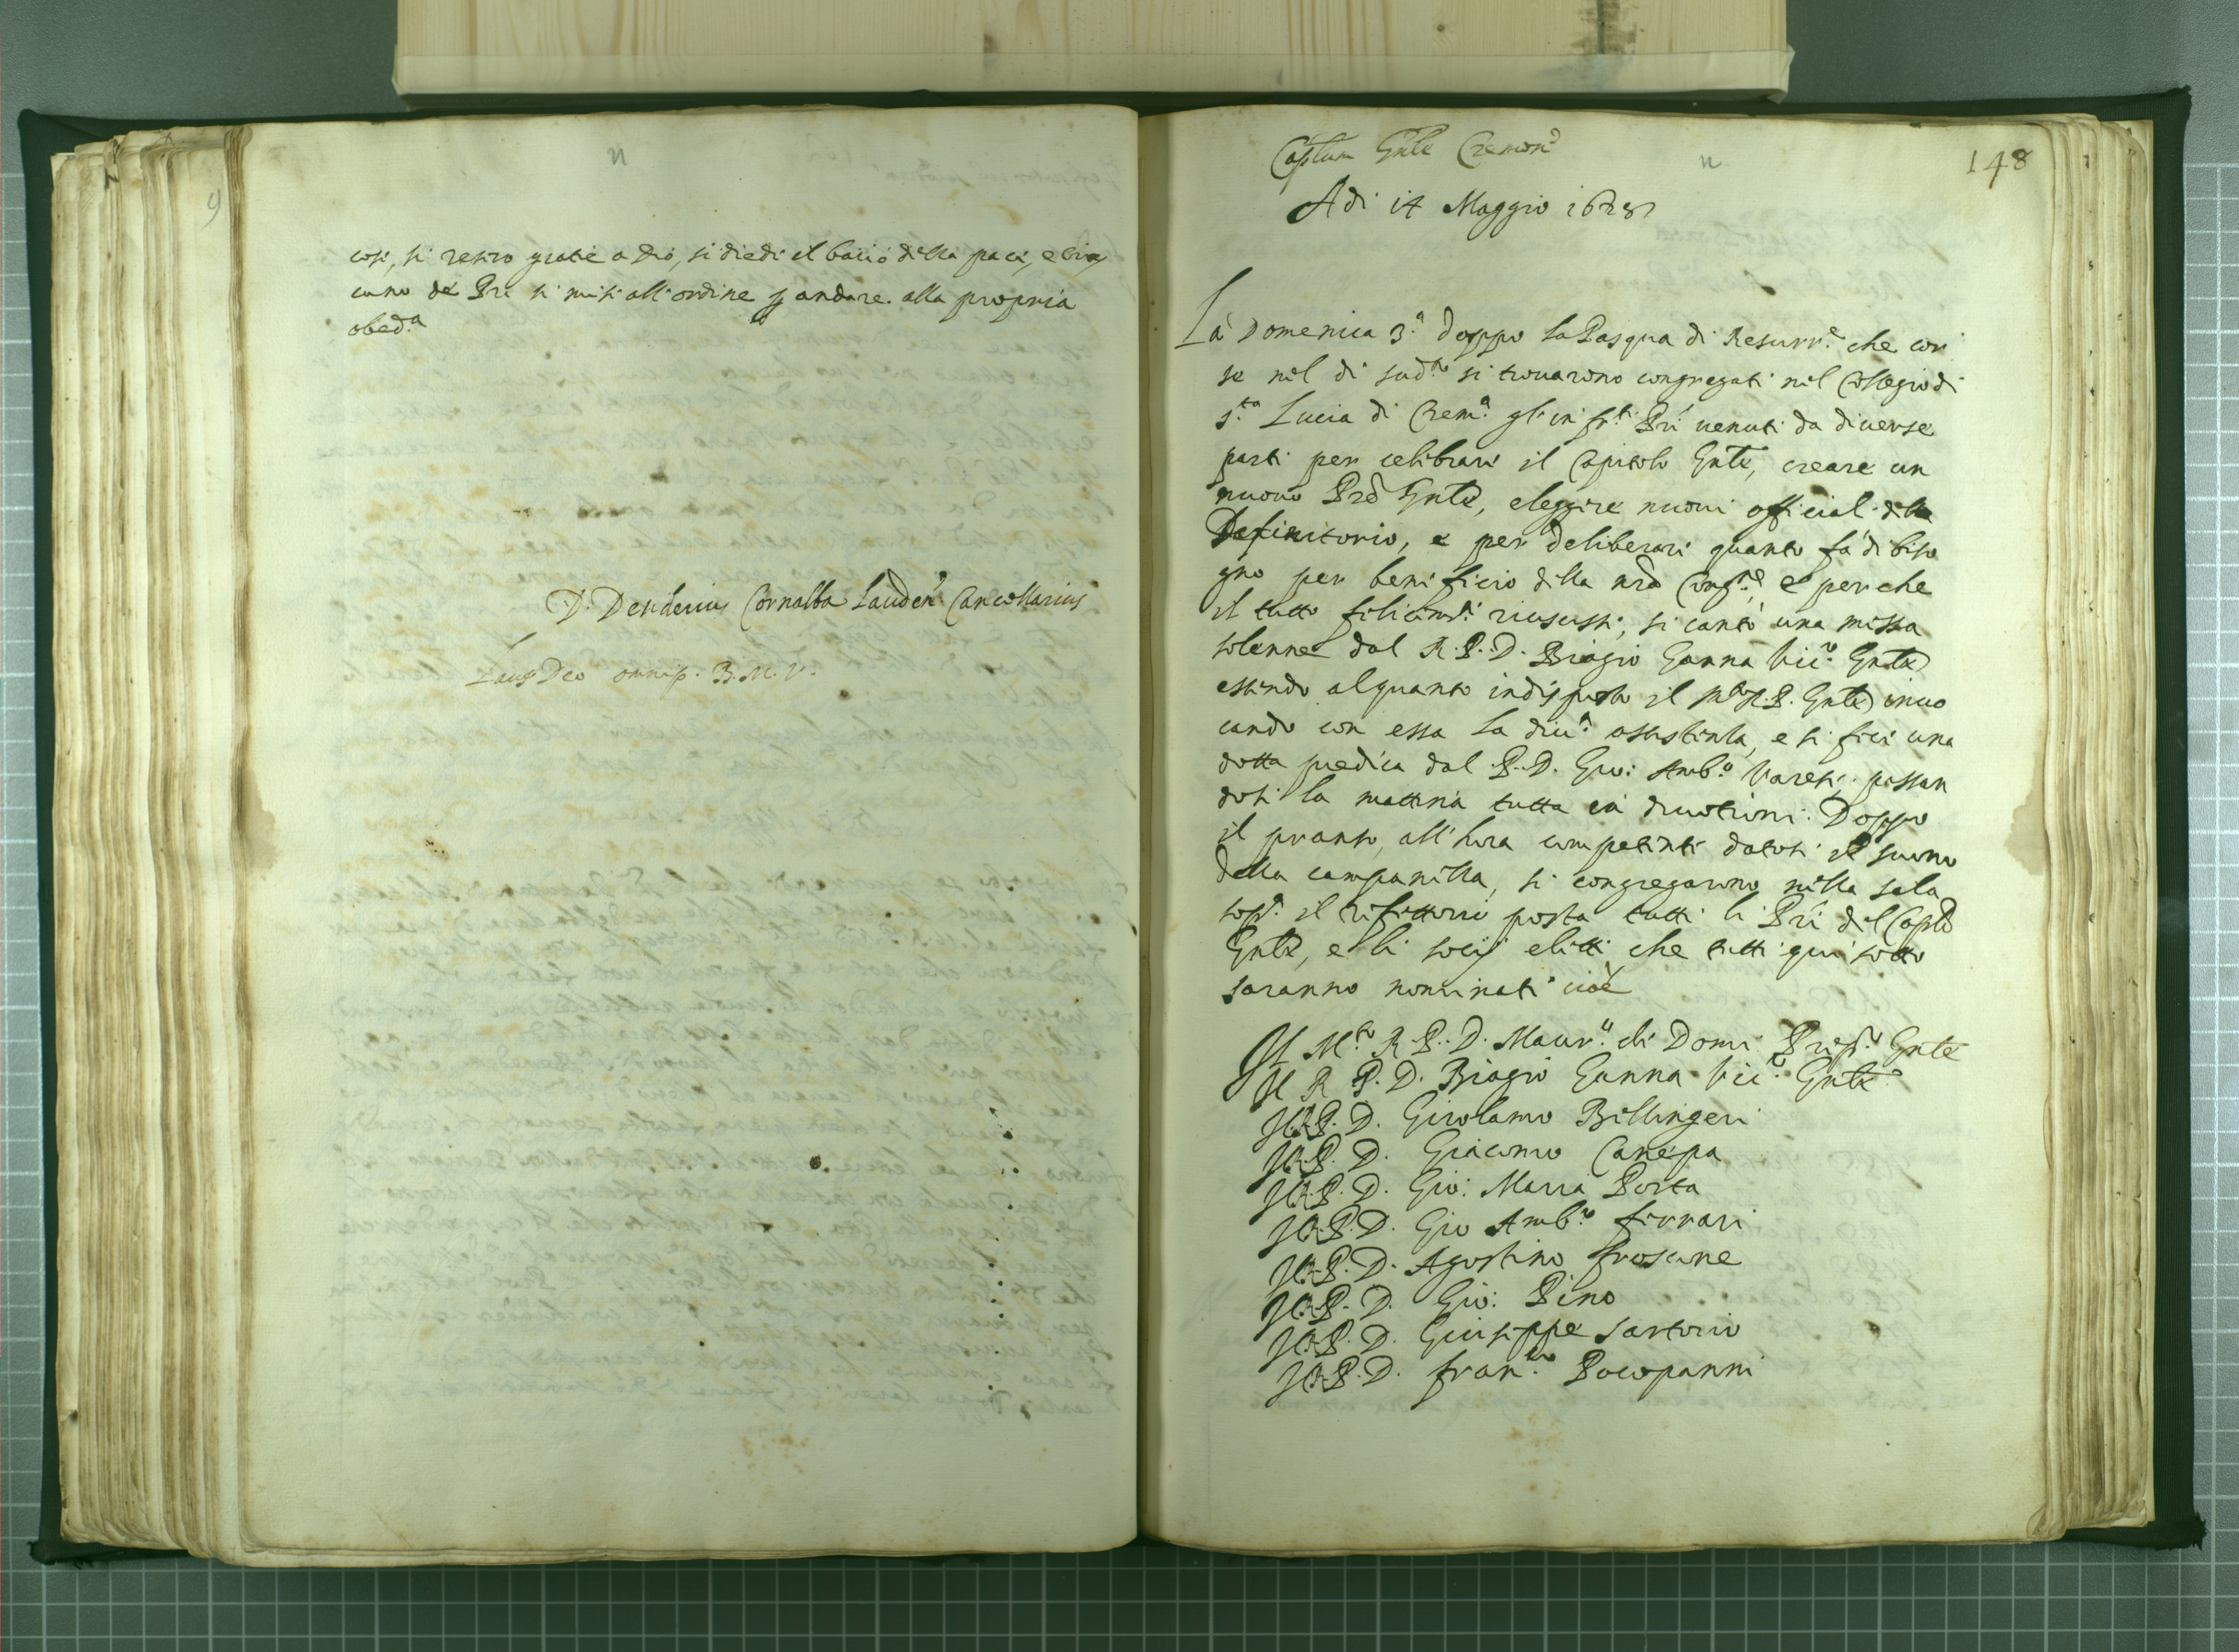 così, si resero gratie a Dio, si diede il baccio della pace, e cias
cuno de Pri si mise all'ordine p andare alla propria
obed.a
D. Desiderius Cornalba Lauden. Cancellarius
Laus Deo omnip. B. M. V.
Caplum Gnle Cremon
148
Adi 14 Maggio
La Domenica 3.a doppo la Pasqua di Resurr.e che cor
se nel di sud.to si trovarono congregati nel Collegio di
S.ta Lucia di Crem.a gli infr.ti Pri venuti da diverse
parti per celebrare il Capitolo Gnle, creare un
nuovo Pre Gnle, eleggere nuovi officiali del
Definitorio, e per deliberare quanto fà di biso
gno per beneficio della nra Cong.e, e perche
il tutto felicem.te riuscisse, si cantò una messa
solenne dal R. P. D. Biagio Ganna Vic.o Gnle
essendo alquanto indisposto il M.to R. P. Gnle invo
cando con essa la div.a assistenza, e si fece una
dotta predica dal P. D. Gio: Amb.o Varese, passan
dosi la mattina tutta in divotioni. Doppo
il pranso, all'hora competente datosi il suono
della campanella, si congregarono nella sala
sop.a il refettorio posta tutti li Pri del Caplo
Gnle, e li socij eletti che tutti qui sotto
saranno nominati cioè
Il M.to R. P. D. Maur.o de Domi Prep.o Gnle
Il R. P. D. Biagio Ganna Vic.o Gnle
Il R. P. D. Girolamo Bellingeri
Il R. P. D. Giacomo Canepa
Il R. P. D. Gio: Maria Porta
Il R. P. D. Gio Amb.o Ferrari
Il R. P. D. Agostino Froscone
Il R. P. D. Gio: Pino
Il R. P. D. Giuseppe Sartorio
Il R. P. D. Fran.co Pocopanni